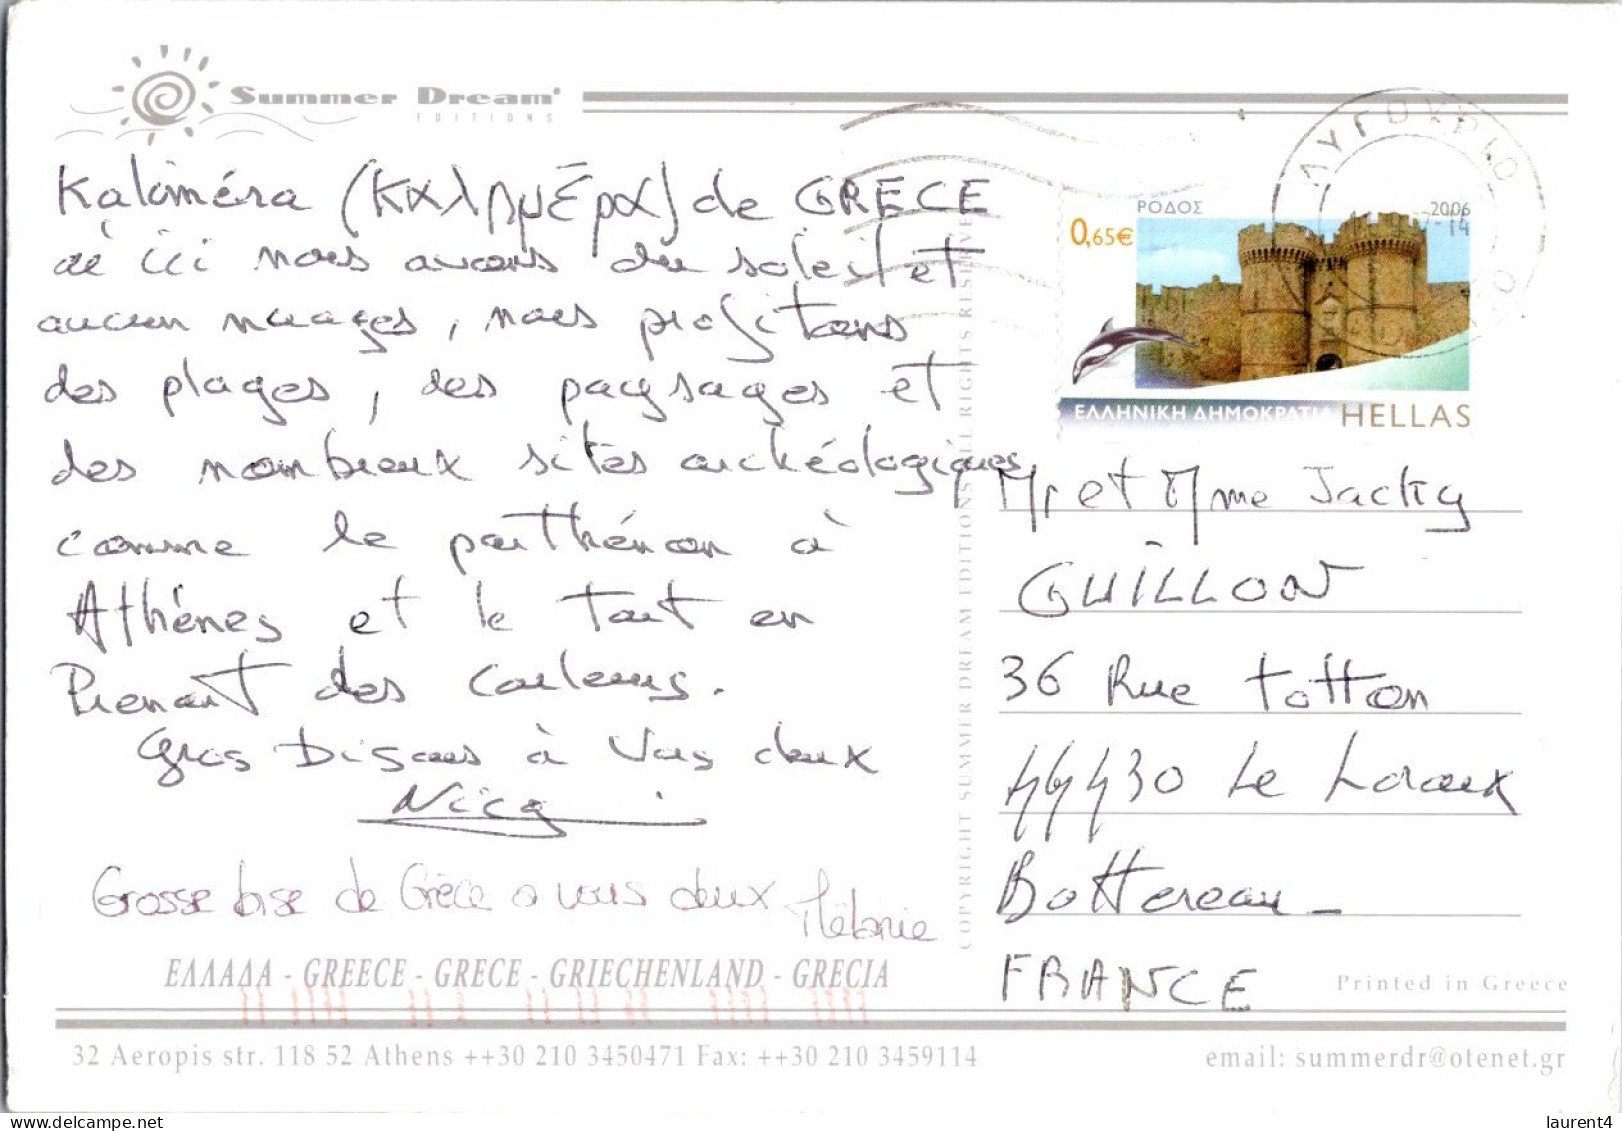 Summer Dream
EDITIONS
Kaliméra (Καλημέρα) de GRECE
où ici nous avons du soleil et
aucun nuages, nous profitons
des plages, des paysages et
des nombreux sites archéologiques
comme le parthénon à
Athénes et le tout en
Prenant des couleurs.
Gros Bisous à Vous deux
Grosse bise de Grèce a vous deux Mélanie
ΕΛΛΑΔΑ - GREECE - GRECE - GRIECHENLAND - GRECIA
32 Aeropis str. 118 52 Athens ++30 210 3450471 Fax: ++30 210 3459114
COPYRIGHT SUMMER DREAM EDITIONS ALL RIGHTS RESERVED
ΡΟΔΟΣ 2006
0,65€
ΕΛΛΗΝΙΚΗ ΔΗΜΟΚΡΑΤΙΑ HELLAS
Mr et Mme Jacky
GUILLON
36 Rue Totton
44430 Le Loroux
Bottereau
FRANCE
Printed in Greece
email: summerdr@otenet.gr
laurent4